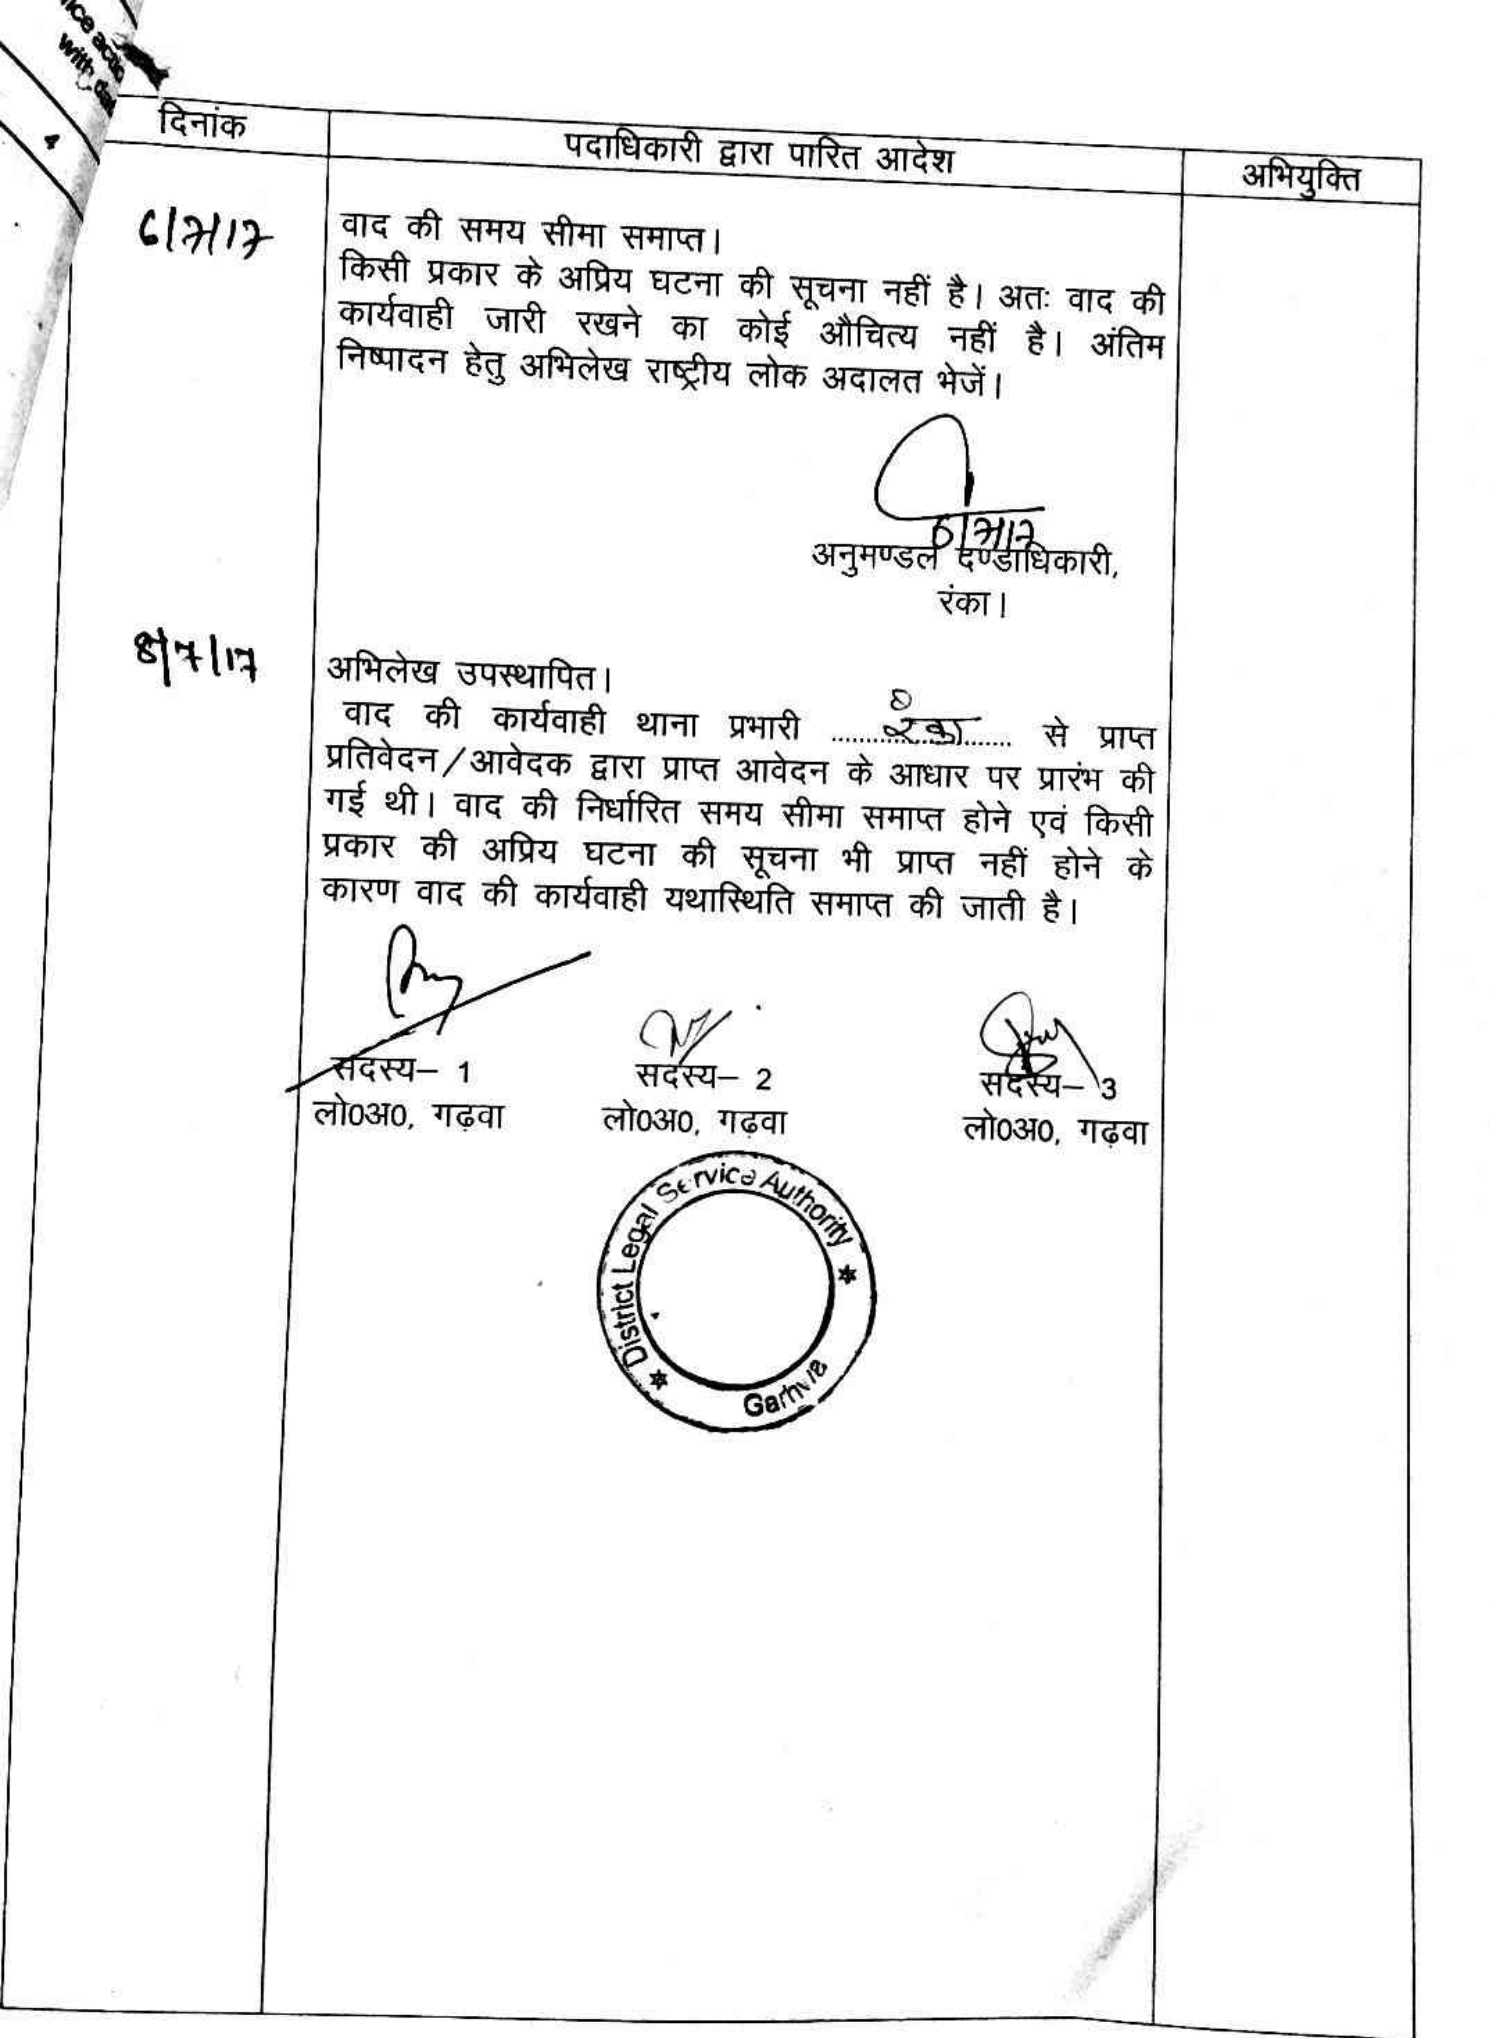 with
4
दिनांक
पदाधिकारी द्वारा पारित आदेश
अभियुक्ति
6/7/17
वाद की समय सीमा समाप्त।
किसी प्रकार के अप्रिय घटना की सूचना नहीं है। अतः वाद की
कार्यवाही जारी रखने का कोई औचित्य नहीं है। अंतिम
निष्पादन हेतु अभिलेख राष्ट्रीय लोक अदालत भेजें।
6/7/17
अनुमण्डल दण्डाधिकारी,
रंका।
8/7/17
अभिलेख उपस्थापित।
वाद की कार्यवाही थाना प्रभारी ..........रंका.......... से प्राप्त
प्रतिवेदन/आवेदक द्वारा प्राप्त आवेदन के आधार पर प्रारंभ की
गई थी। वाद की निर्धारित समय सीमा समाप्त होने एवं किसी
प्रकार की अप्रिय घटना की सूचना भी प्राप्त नहीं होने के
कारण वाद की कार्यवाही यथास्थिति समाप्त की जाती है।
सदस्य– 1 सदस्य– 2 सदस्य– 3
लो0अ0, गढ़वा लो0अ0, गढ़वा लो0अ0, गढ़वा
District Legal Service Authority
Garhwa